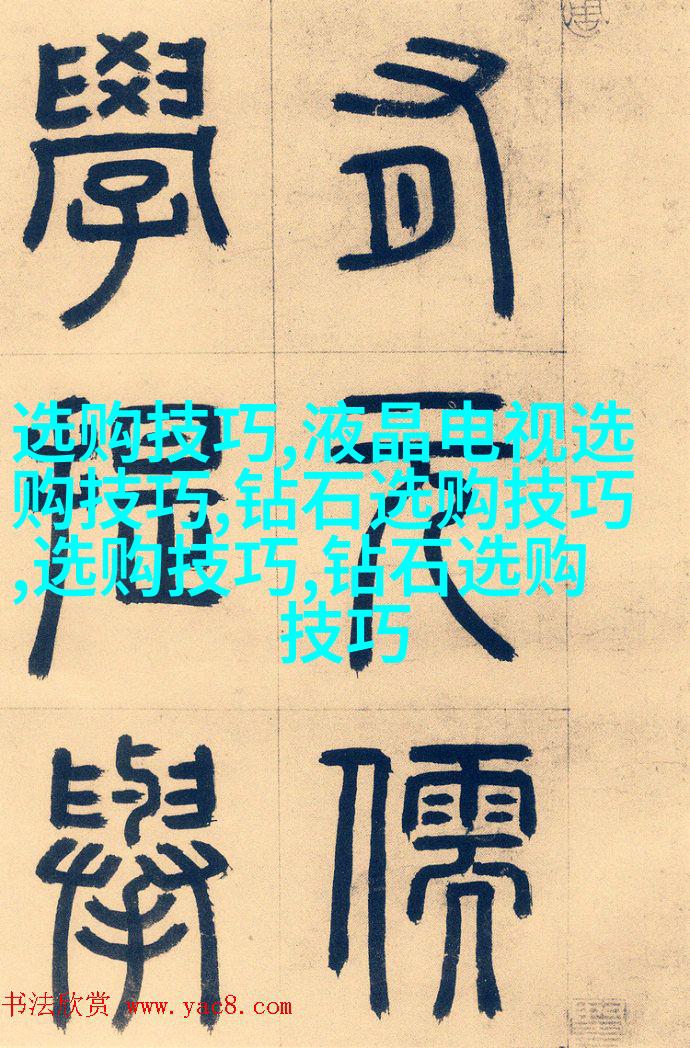 有元儒
學提舉
选购技巧,液晶电视选
购技巧,钻石选购技巧
,选购技巧,钻石选购
技巧
书法欣赏 www.yac8.com